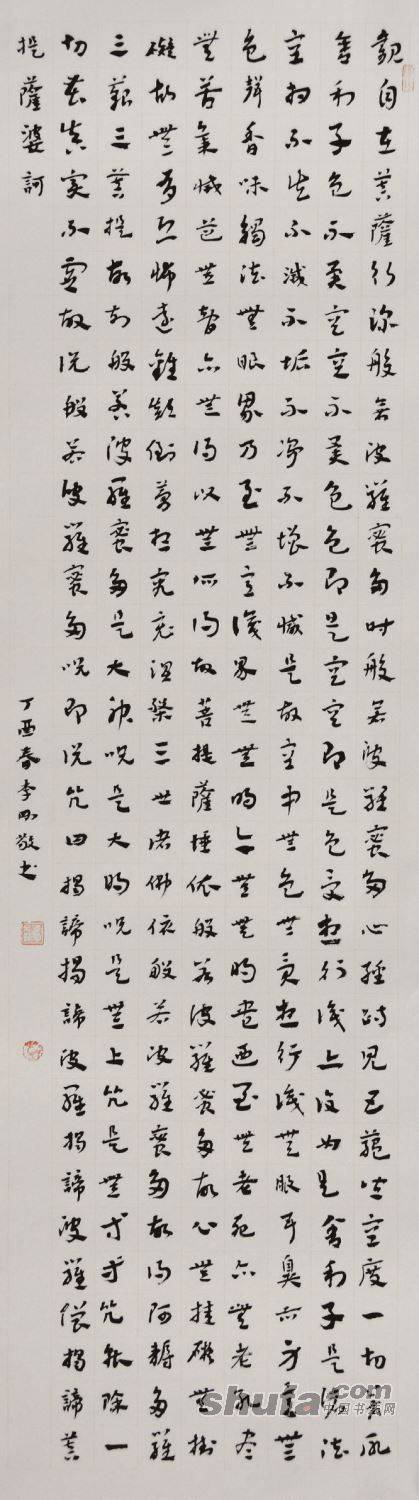 觀自在菩薩行深般若波羅蜜多時般若波羅蜜多心經照見五蘊皆空度一切苦厄
舍利子色不異空空不異色色即是空空即是色受想行識亦復如是舍利子是諸法
空相不生不滅不垢不淨不增不減是故空中無色無受想行識無眼耳鼻舌身意無
色聲香味觸法無眼界乃至無意識界無無明亦無無明盡乃至無老死亦無老死盡
無苦集滅道無智亦無得以無所得故菩提薩埵依般若波羅蜜多故心無罣礙無罣
礙故無有恐怖遠離顛倒夢想究竟涅槃三世諸佛依般若波羅蜜多故得阿耨多羅
三藐三菩提故知般若波羅蜜多是大神咒是大明咒是無上咒是無等等咒能除一
切苦真實不虛故說般若波羅蜜多咒即說咒曰揭諦揭諦波羅揭諦波羅僧揭諦菩
提薩婆訶
丁酉春李剛敬書
shufa.com
中国书法网